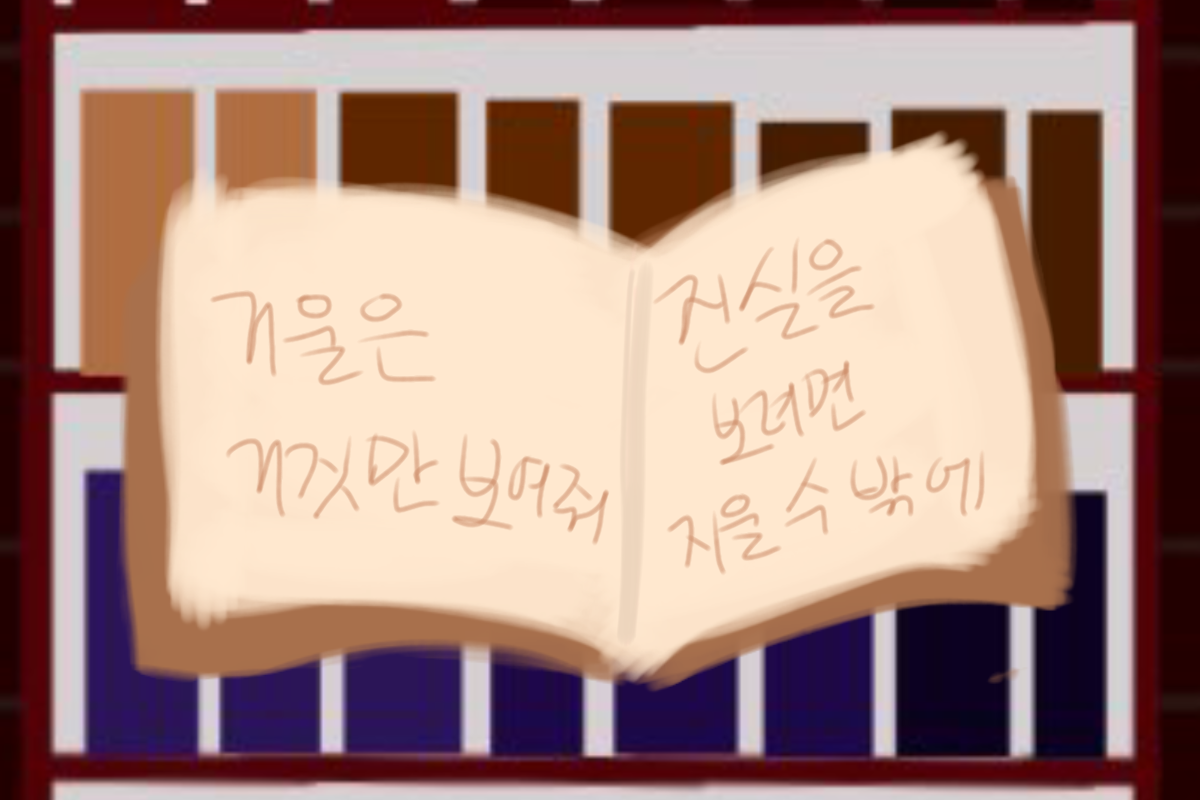 거울은
거짓만 보여줘
진실을
보려면
지울 수 밖에